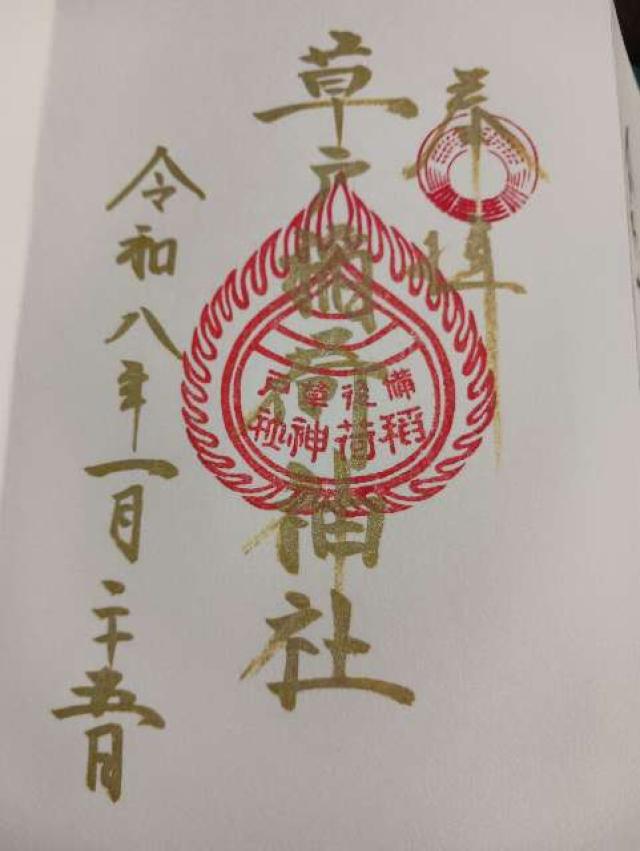 奉拝
草戸稲荷神社
備後草戸
稲荷神社
令和八年一月二十五日